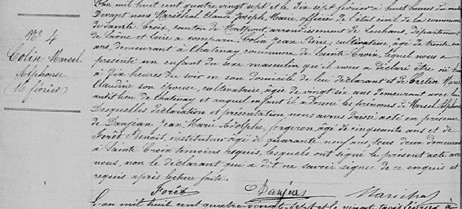 N° 4
Colin Marcel
Alphonse
16 février
L'an mil huit cent quatre vingt sept et le dix sept février à huit heures du matin
devant nous Maréchal Claude Joseph, Maire, officier de l'état civil de la commune
de Sainte Croix, canton de Montpont, arrondissement de Louhans, département
de Saône et Loire a comparu Colin Jean Pierre, cultivateur, âgé de trente
ans, demeurant à Chatenay commune de Sainte Croix, lequel nous a
présenté un enfant du sexe masculin qu'il nous a déclaré être né hier
à dix heures du soir en son domicile de lui déclarant et de Marie
Claudine son épouse, cultivatrice, âgée de vingt six ans demeurant avec lui
audit lieu de Chatenay et auquel enfant il a donné les prénoms de Marcel Alphonse
Lesquelles déclaration et présentation nous avons dressé acte en présence
de Danjean Jean Marie Adolphe, forgeron, âgé de cinquante ans et de
Forêt Benoit, instituteur âgé de quarante neuf ans, tous deux demeurant
à Sainte Croix témoins requis, lesquels ont signé le présent acte avec
nous, non le déclarant qui a dit ne savoir signer de ce enquis et
requis après lecture faite.
Forêt Danjean Maréchal
L'an mil huit cent quatre vingt sept et le vingt trois février à